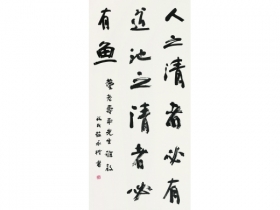 人之清者必有
道池之清者必
有鱼
先生雅教
书